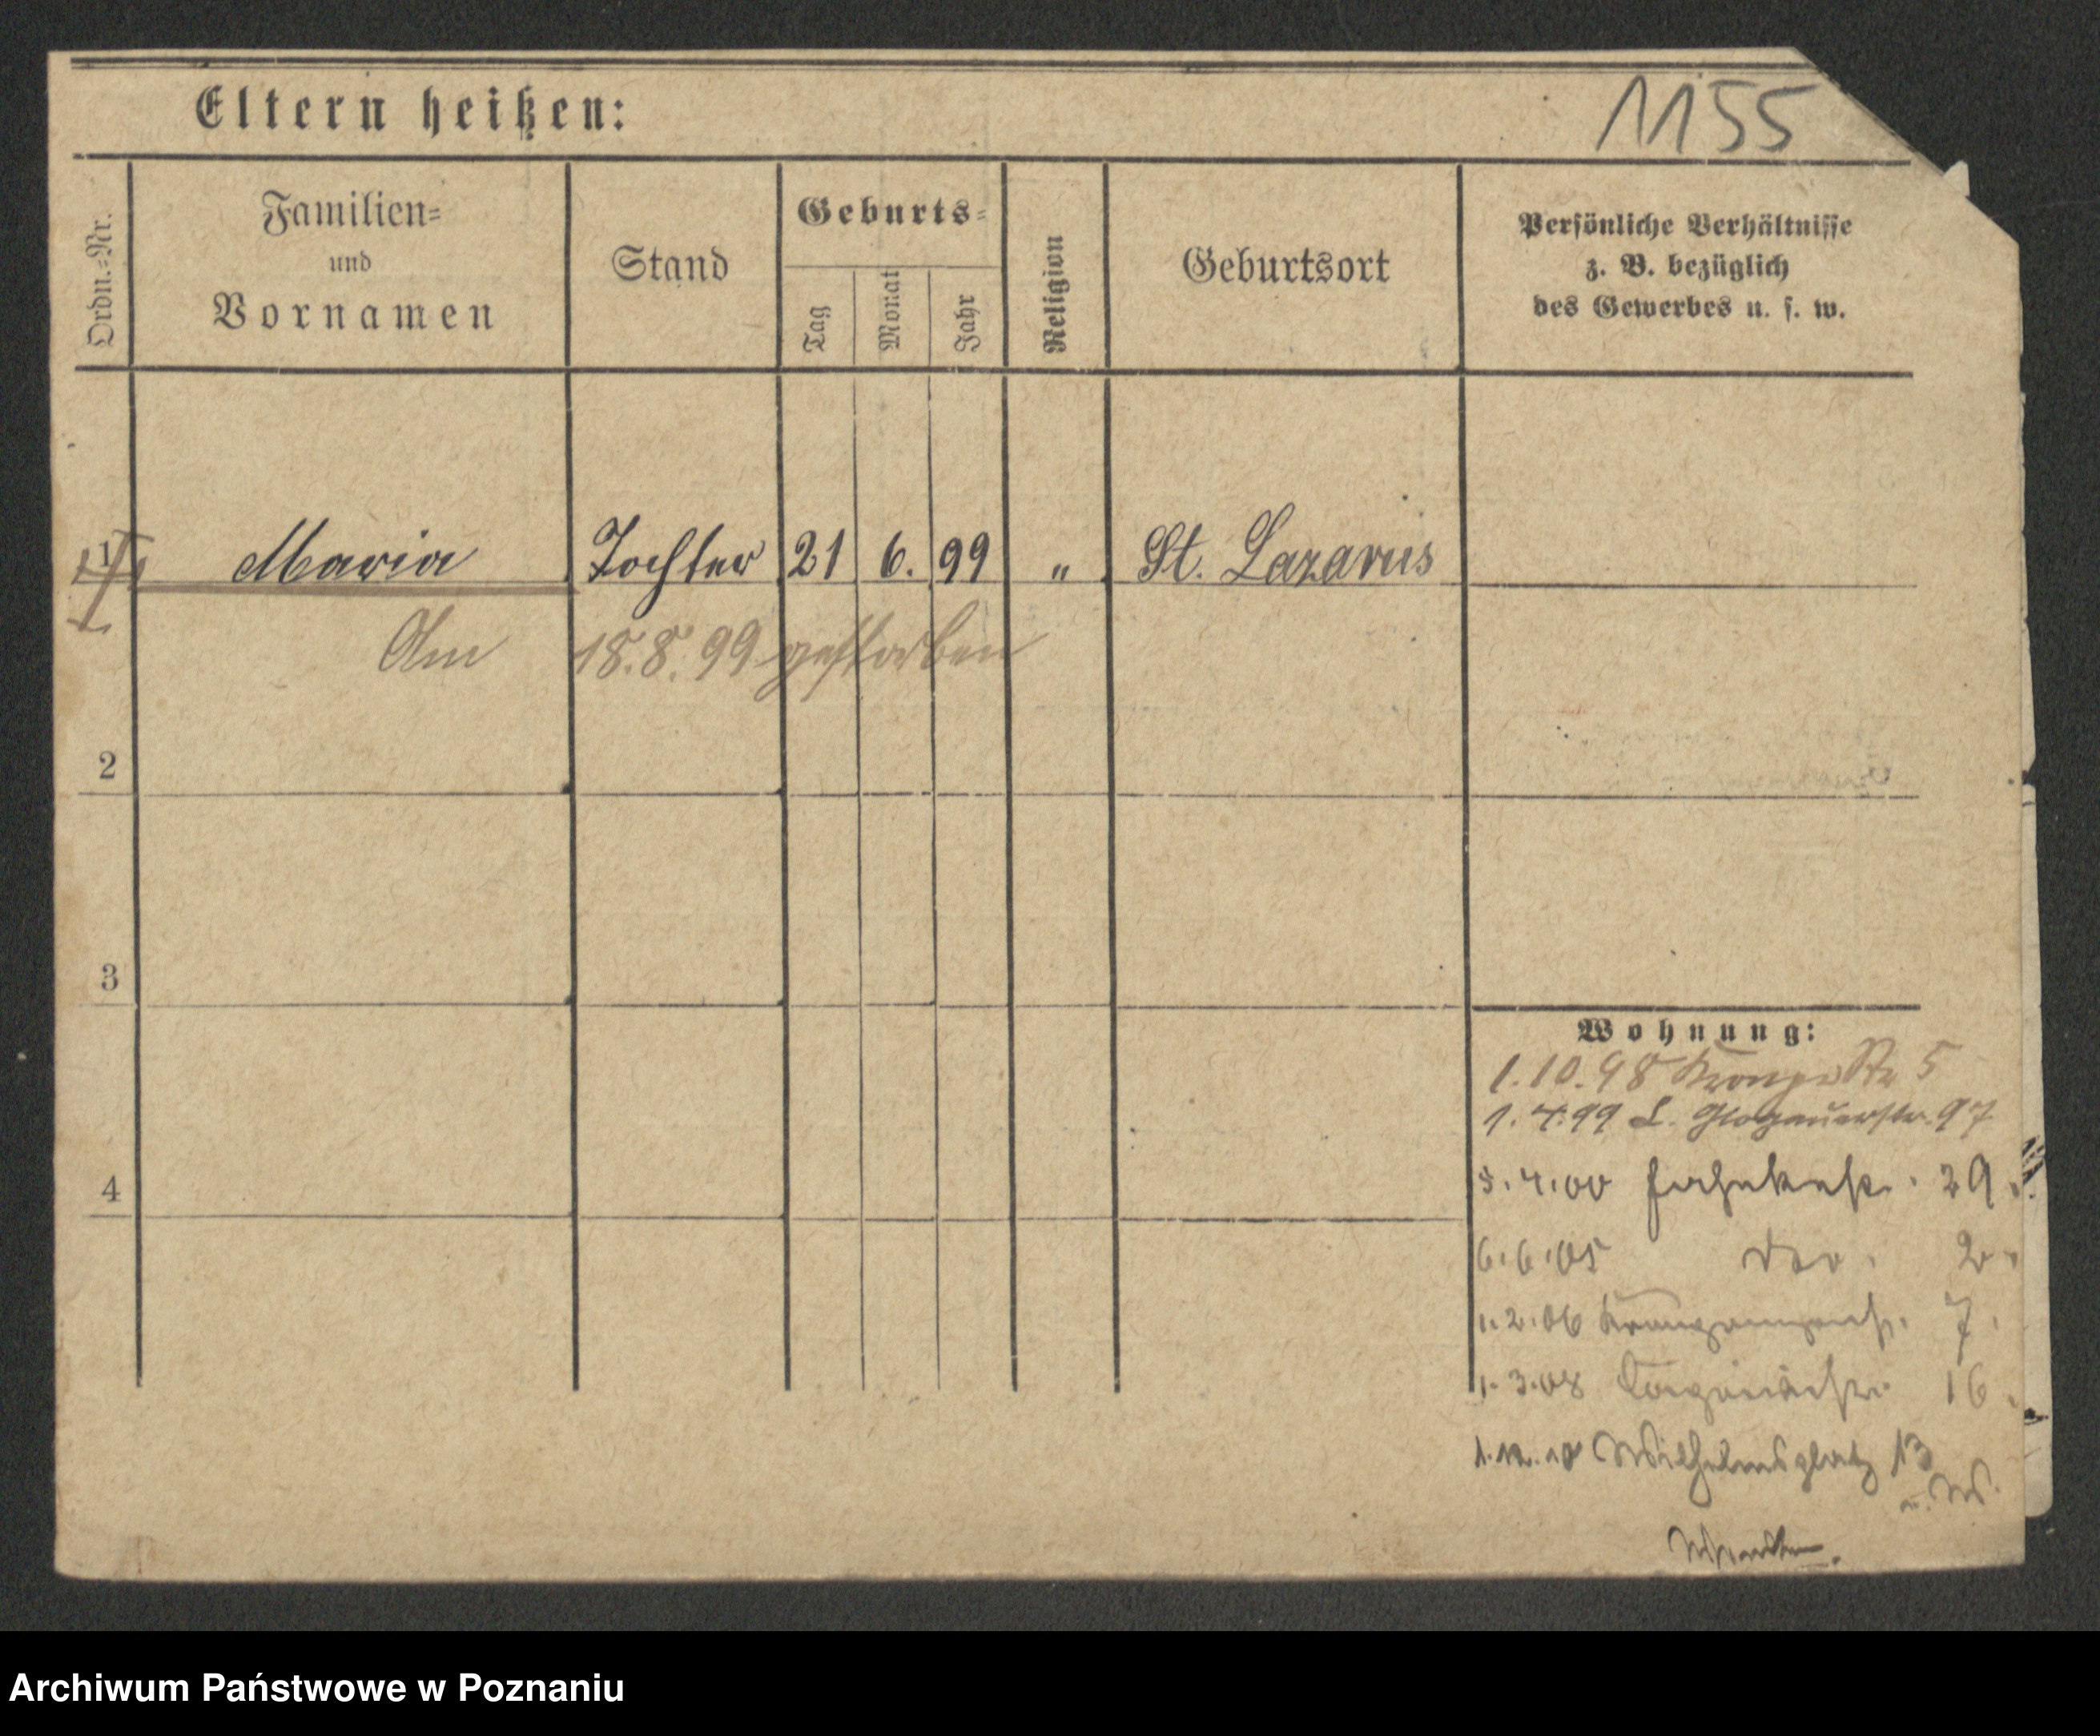 1155
Eltern heißen:
Ordn.-Nr.
Familien-
und
Vornamen
Stand
Geburts-
Tag
Monat
Jahr
Religion
Geburtsort
Persönliche Verhältnisse
z. B. bezüglich
des Gewerbes u. s. w.
1 Maria Tochter 21 6. 99 " St. Lazarus
Am 18.8.99 gestorben
2
3
Wohnung:
1.10.98 5
1.4.99 L. Glogauerstr. 97
4
5.4.00 29.
6.6.05 2.
1.2.06 7.
1.3.08 16.
Wilhelmsplatz 13
Archiwum Państwowe w Poznaniu